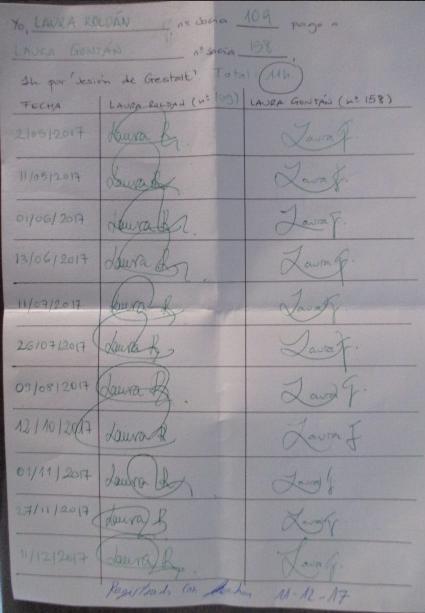 Yo, LAURA ROLDÁN, nº socia 109 pago a
LAURA GONTÁN nº socia 158,
1h por 'Sesión de Gestalt' Total: 11h
FECHA LAURA ROLDÁN (nº 109) LAURA GONTÁN (nº 158)
2/05/2017 Laura R. Laura G.
11/05/2017 Laura R. Laura G.
01/06/2017 Laura R. Laura G.
13/06/2017 Laura R. Laura G.
11/07/2017 Laura R. Laura G.
26/07/2017 Laura R. Laura G.
09/08/2017 Laura R. Laura G.
12/10/2017 Laura R Laura G
01/11/2017 Laura R. Laura G
27/11/2017 Laura R Laura G.
11/12/2017 Laura R Laura G.
11-12-17